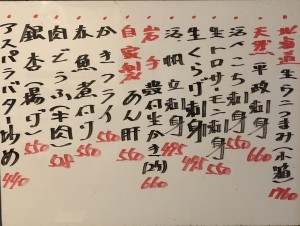 北海道 生ウニつまみ(小箱) 1760
天然 平政刺身 660
活べこち刺身 550
生トロサーモン刺身 550
生くらげ刺身 495
活帆立刺身 495
岩手 殻付生かき(2ケ) 660
自家製 あん肝 550
かきフライ 550
赤魚煮付 550
肉どうふ(牛肉) 528
銀杏(揚げ) 550
アスパラバター炒め 440